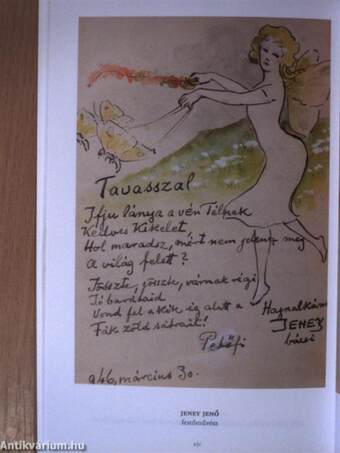 Tavasszal
Ifju lánya a vén Télnek
Kedves Kikelet,
Hol maradsz, mért nem jelensz meg
A világ felett?
Jöszte, jöszte, várnak régi
Jó barátaid
Vond fel a kék ég alatt a
Fák zöld sátrait!
Petőfi
946, március 30.
Hajnalkának
JENEY
bácsi
JENEY JENŐ
festőművész
Antikvárium.hu